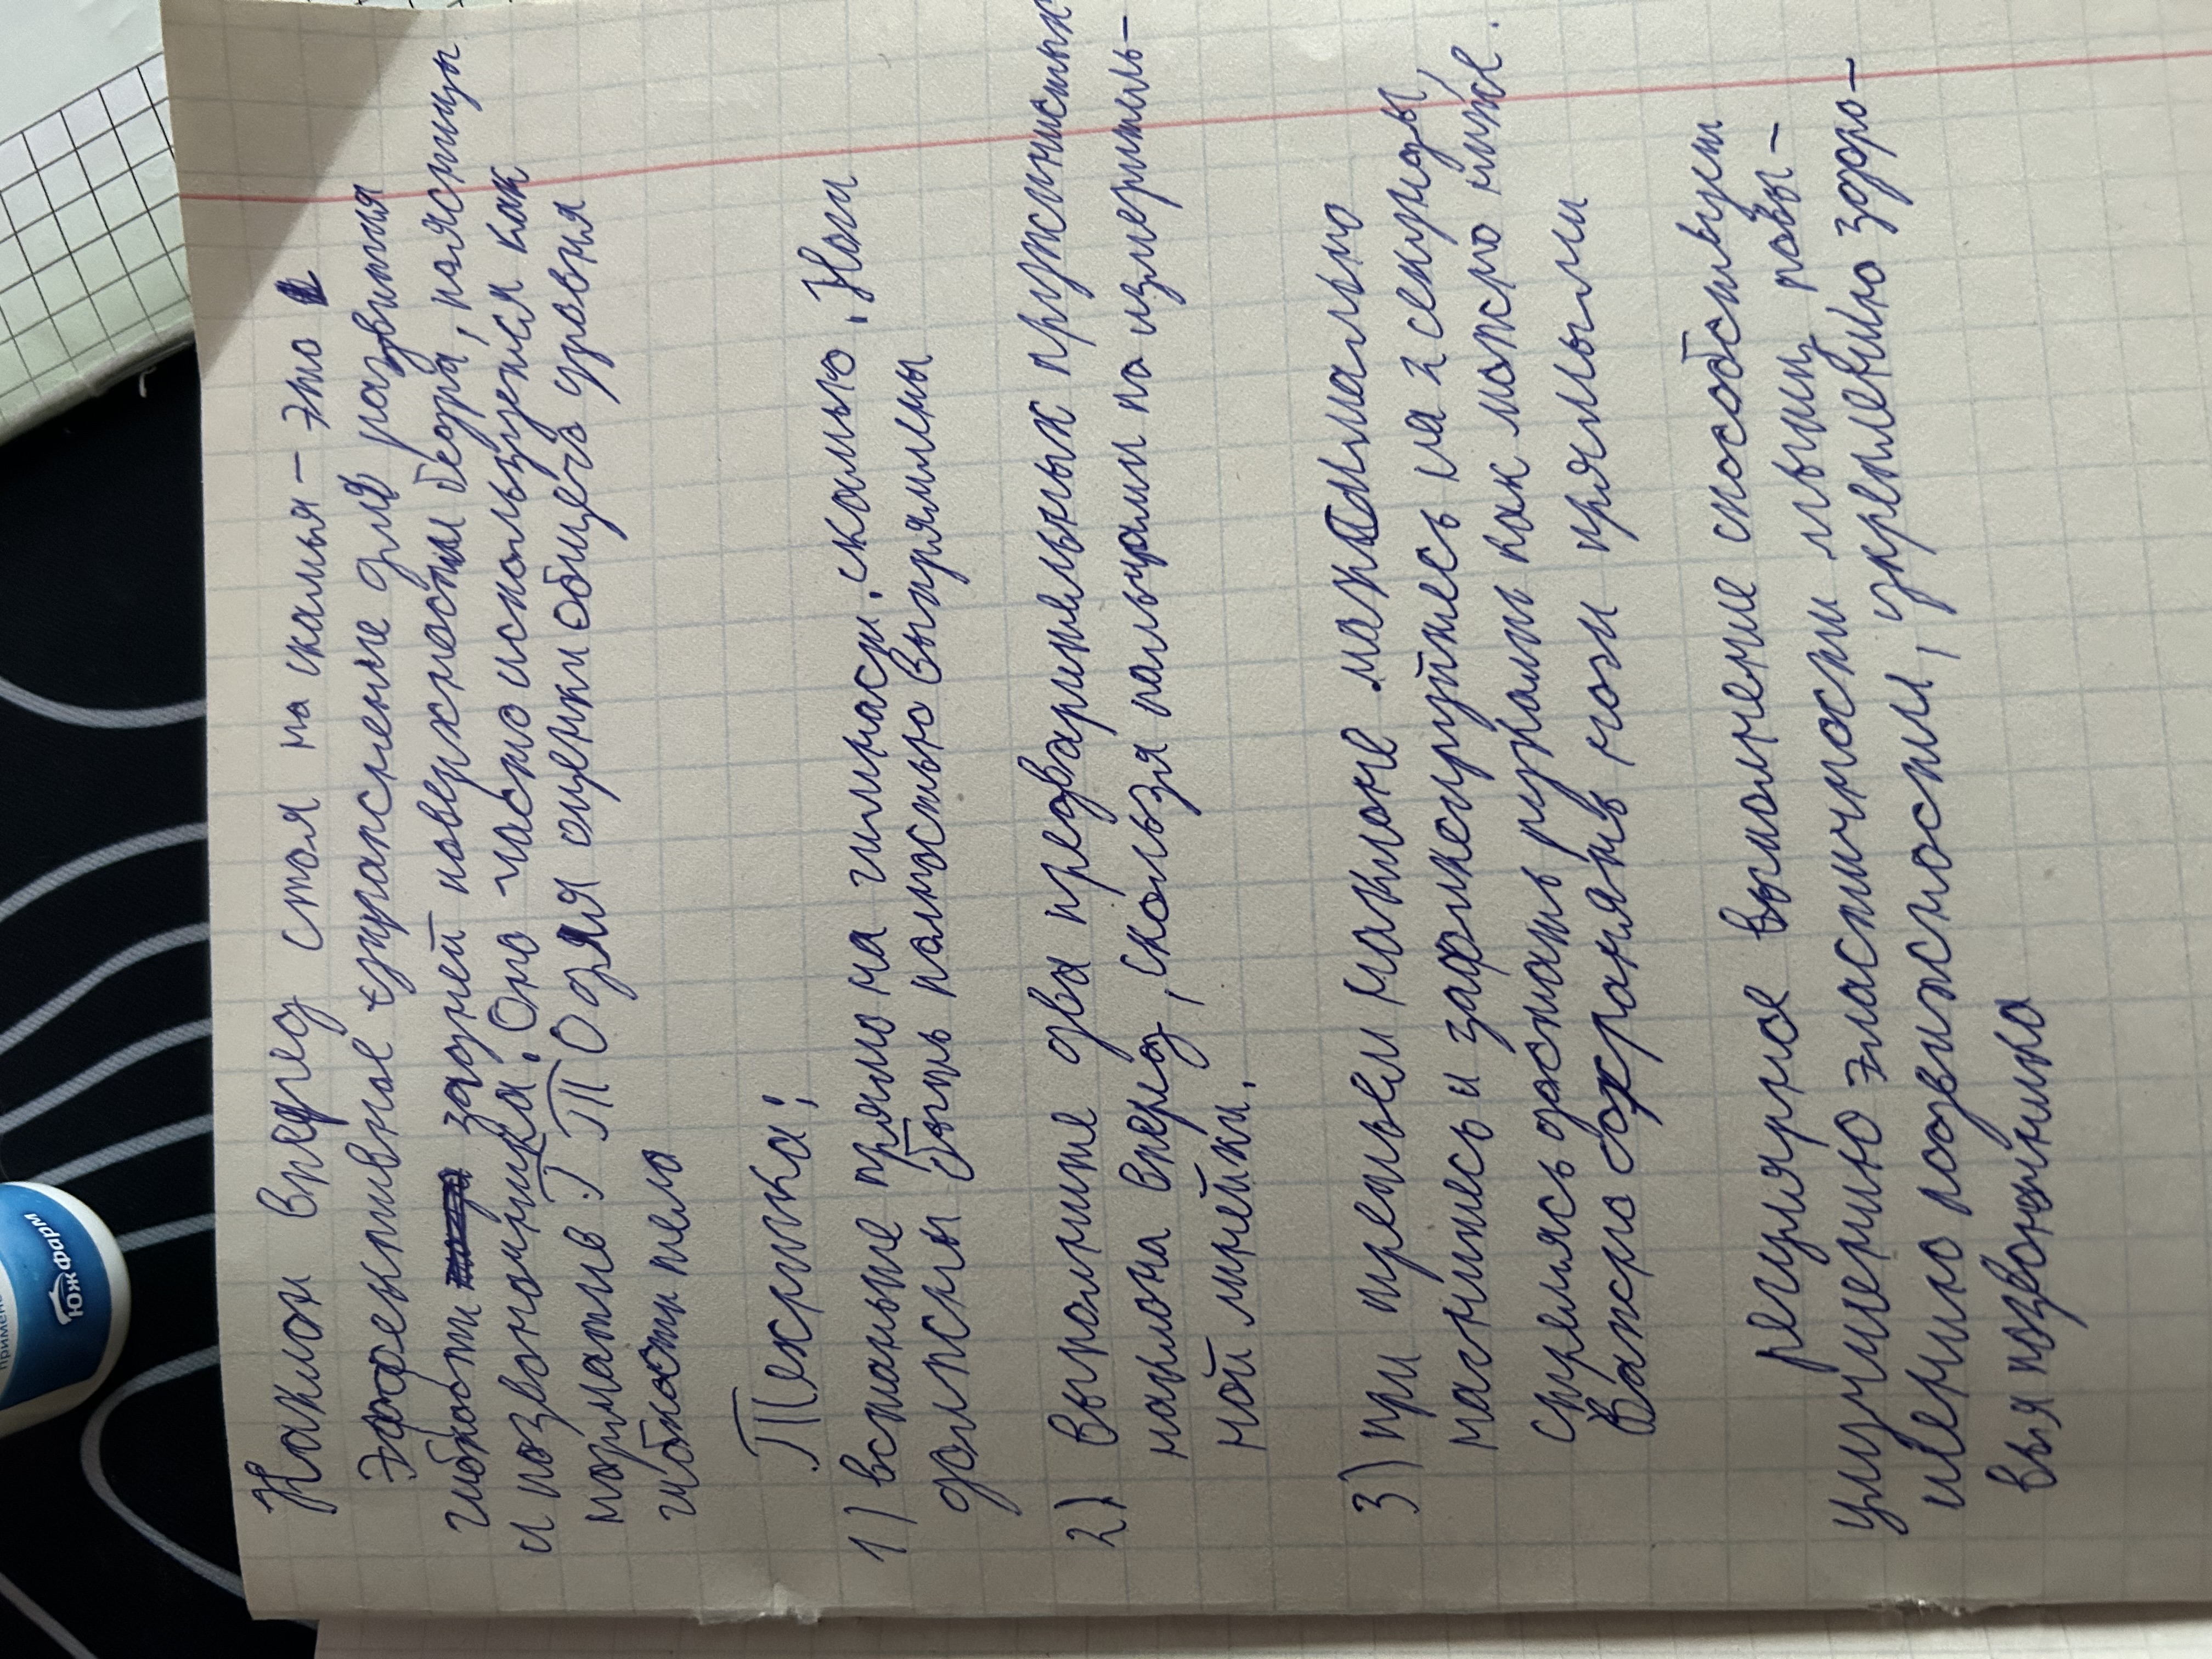 Наклон вперед стоя на скамья – это
эффективное упражнение для развития
гибкости задней поверхности бедра, поясницы
и позвоночника. Оно часто используется как
норматив ГТО для оценки общего уровня
гибкости тела
Техника:
1) встаньте прямо на гимнаст. скамью. Ноги
должны быть полностью выпрямлены
2) выполните два предварительных пружинистых
наклона вперед, скользя пальцами по измеритель-
ной линейки.
3) при третьем наклоне максимально
нагнитесь и зафиксируйтесь на 2 секунды,
стремясь достать руками как можно ниже.
Важно сохранять ноги прямыми
регулярное выполнение способствует
улучшению эластичности мышц, повы-
шению подвижности, укреплению здоро-
вья позвоночника
ЮжФарм